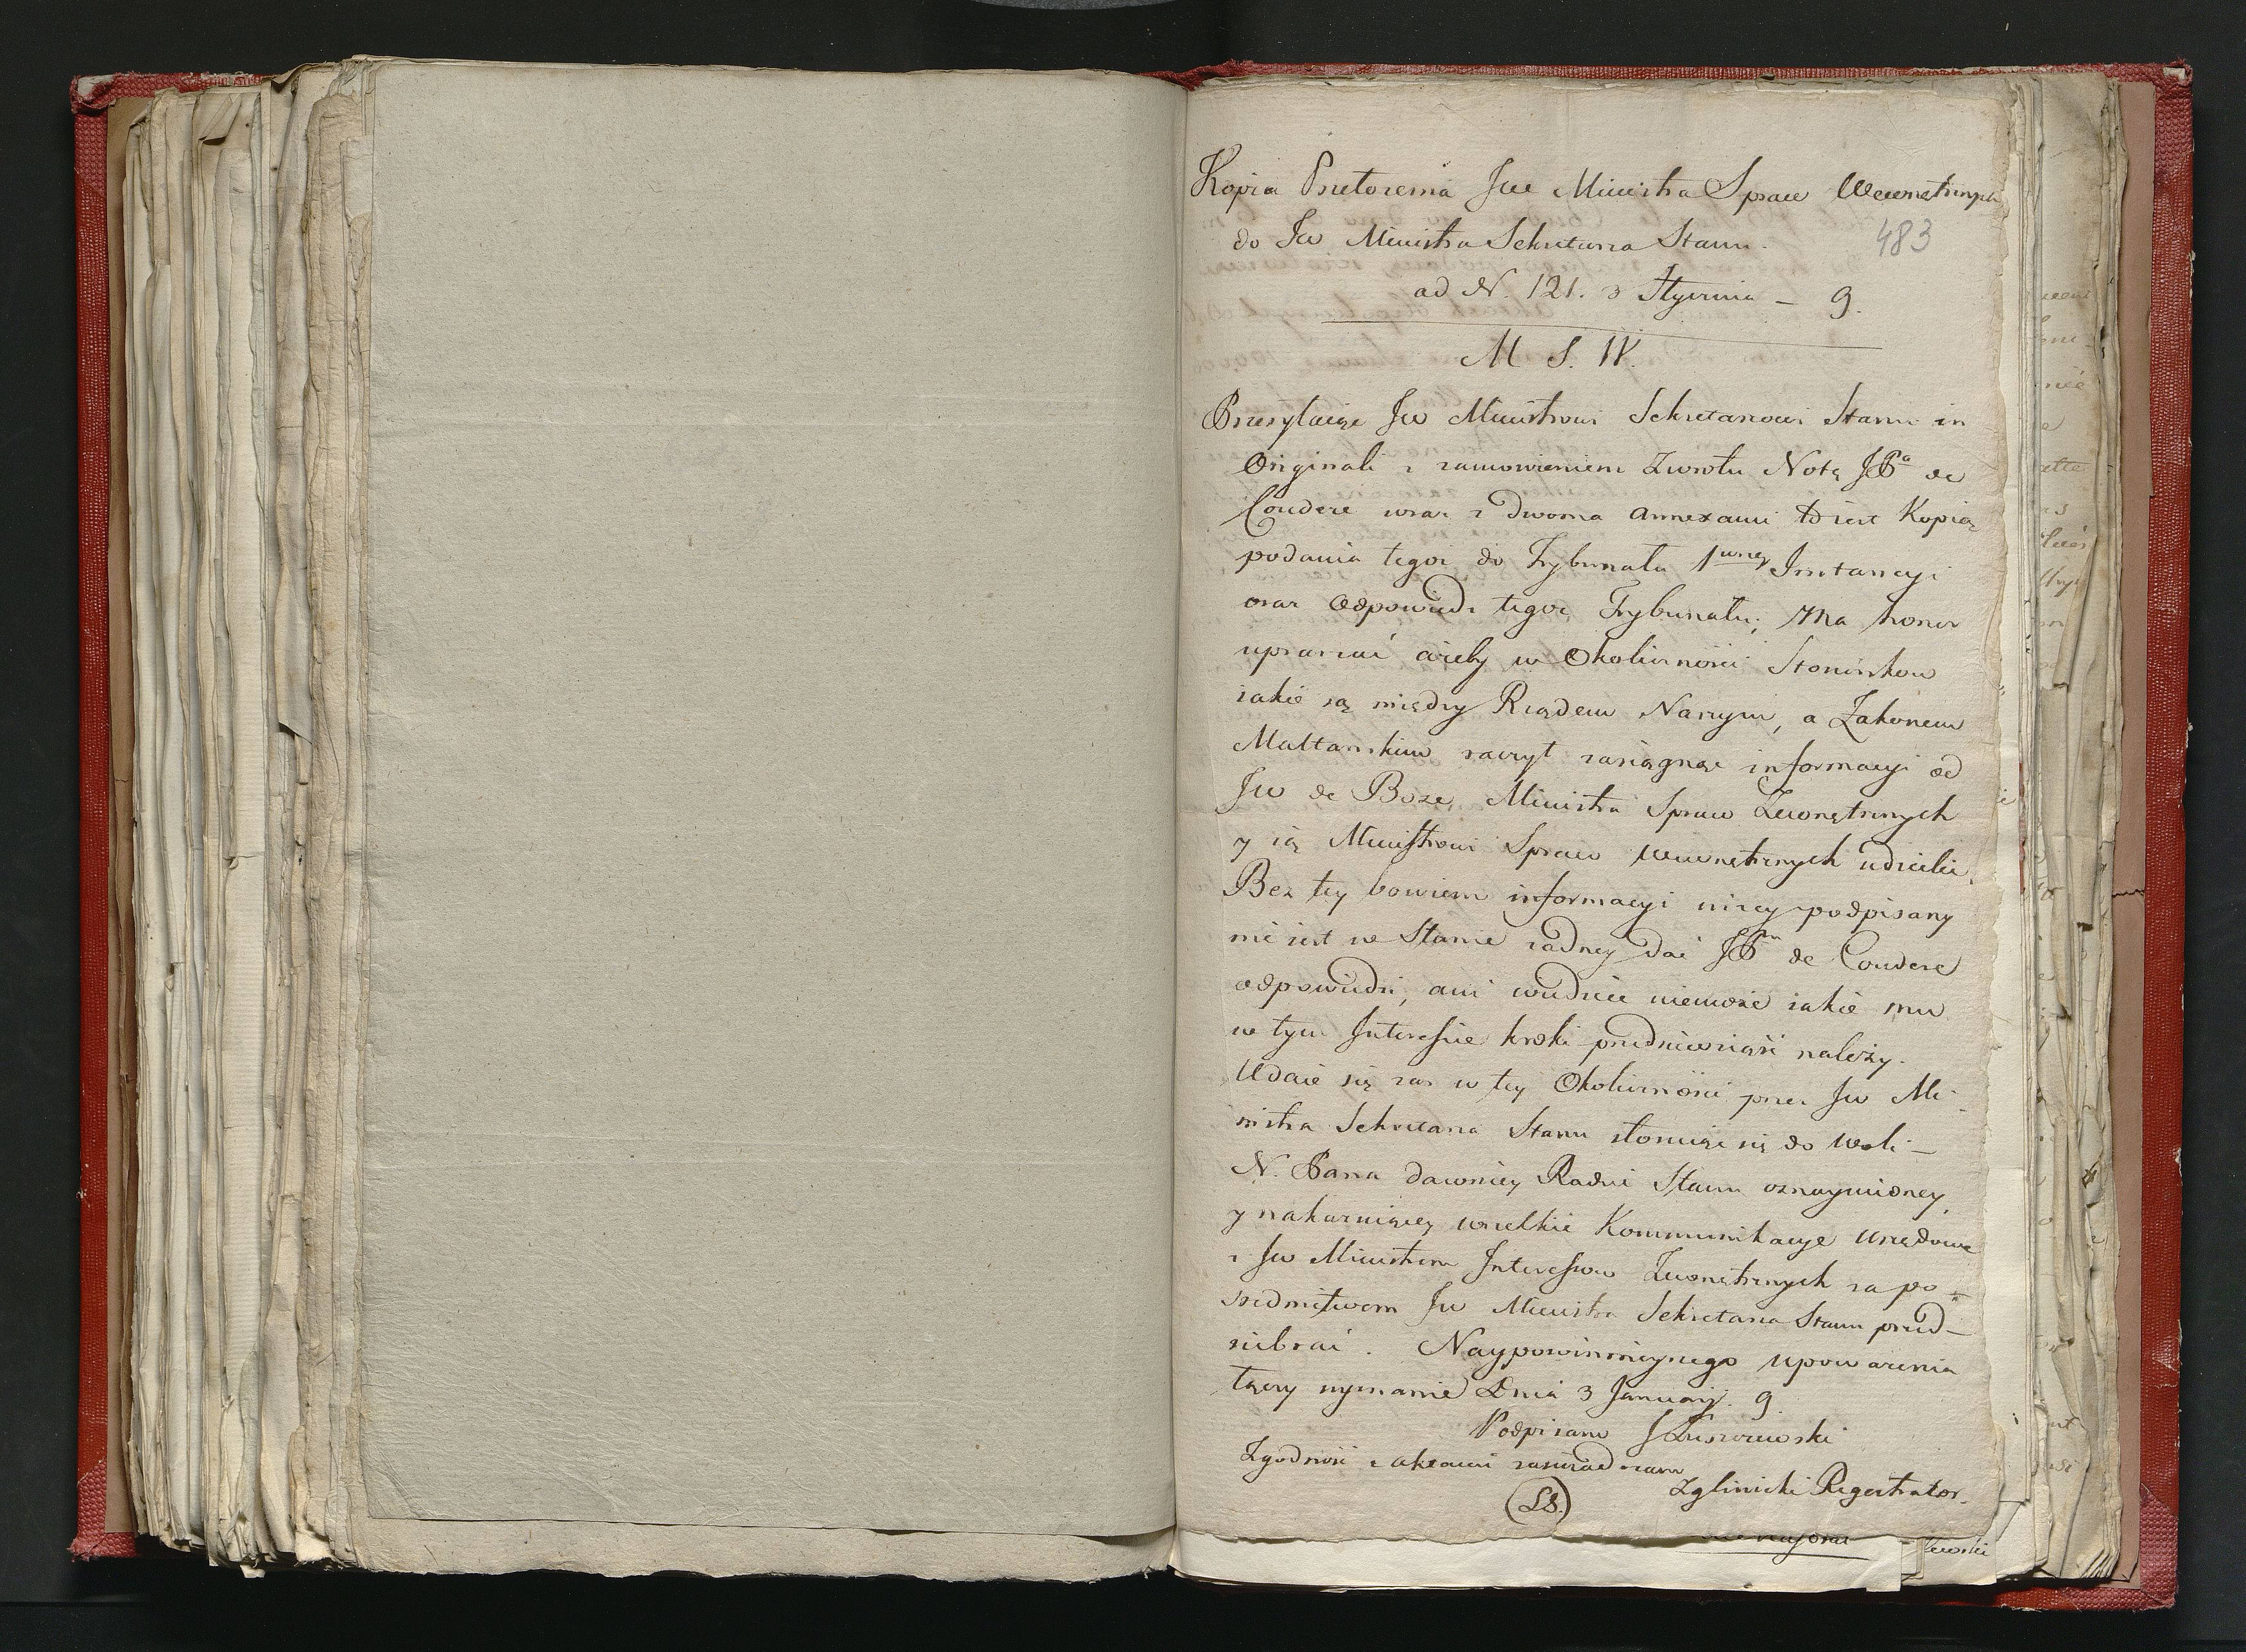 Kopia Przełożenia JW Ministra Spraw Wewnętrznych
483
do JW Ministra Sekretarza Stanu.
ad N. 121. 3 Stycznia – 9.
M S. W.
Przesyłaiąc JW Ministrowi Sekretarzowi Stanu in
Originali z zamowieniem Zwrotu Notę JPa de
Coudere wraz z dwoma annexami to iest Kopią
podania tegoż do Trybunału 1wszey Instancyi
oraz Odpowiedz tegoż Trybunału; ma honor
upraszać ażeby w Okoliczności Stosunkow
iakie są między Rządem Naszym, a Zakonem
Maltanskim raczył zasiągnąć informacyi od
JW de Boze, Ministra Spraw Zewnętrznych
y ią Ministrowi Spraw Wewnętrznych udzielić.
Bez tey bowiem informacyi niżey podpisany
nie iest w Stanie żadney dać JPu de Coudere
odpowiedzi, ani wiedzieć niemoże iakie mu
w tym Interessie kroki przedniewziąść należy.
Udaie się zas w tey Okoliczności przez JW Mi-
nistra Sekretarza Stanu stosuiąc się do Woli –
N. Pana dawniey Radzie Stanu oznaymioney,
y nakazuiącey wszelkie Kommunikacye Urzędowe
z JW Ministrem Interessow Zewnętrznych za po-
srednictwem JW Ministra Sekretarza Stanu przed-
siebrać. Naypowinnieyszego upoważenia
łączy wyznanie Dnia 3 Januarij. 9.
Podpisano JŁuszczewski
Zgodność z aktami zaswiadczam
Zglinicki Registrator.
LS.